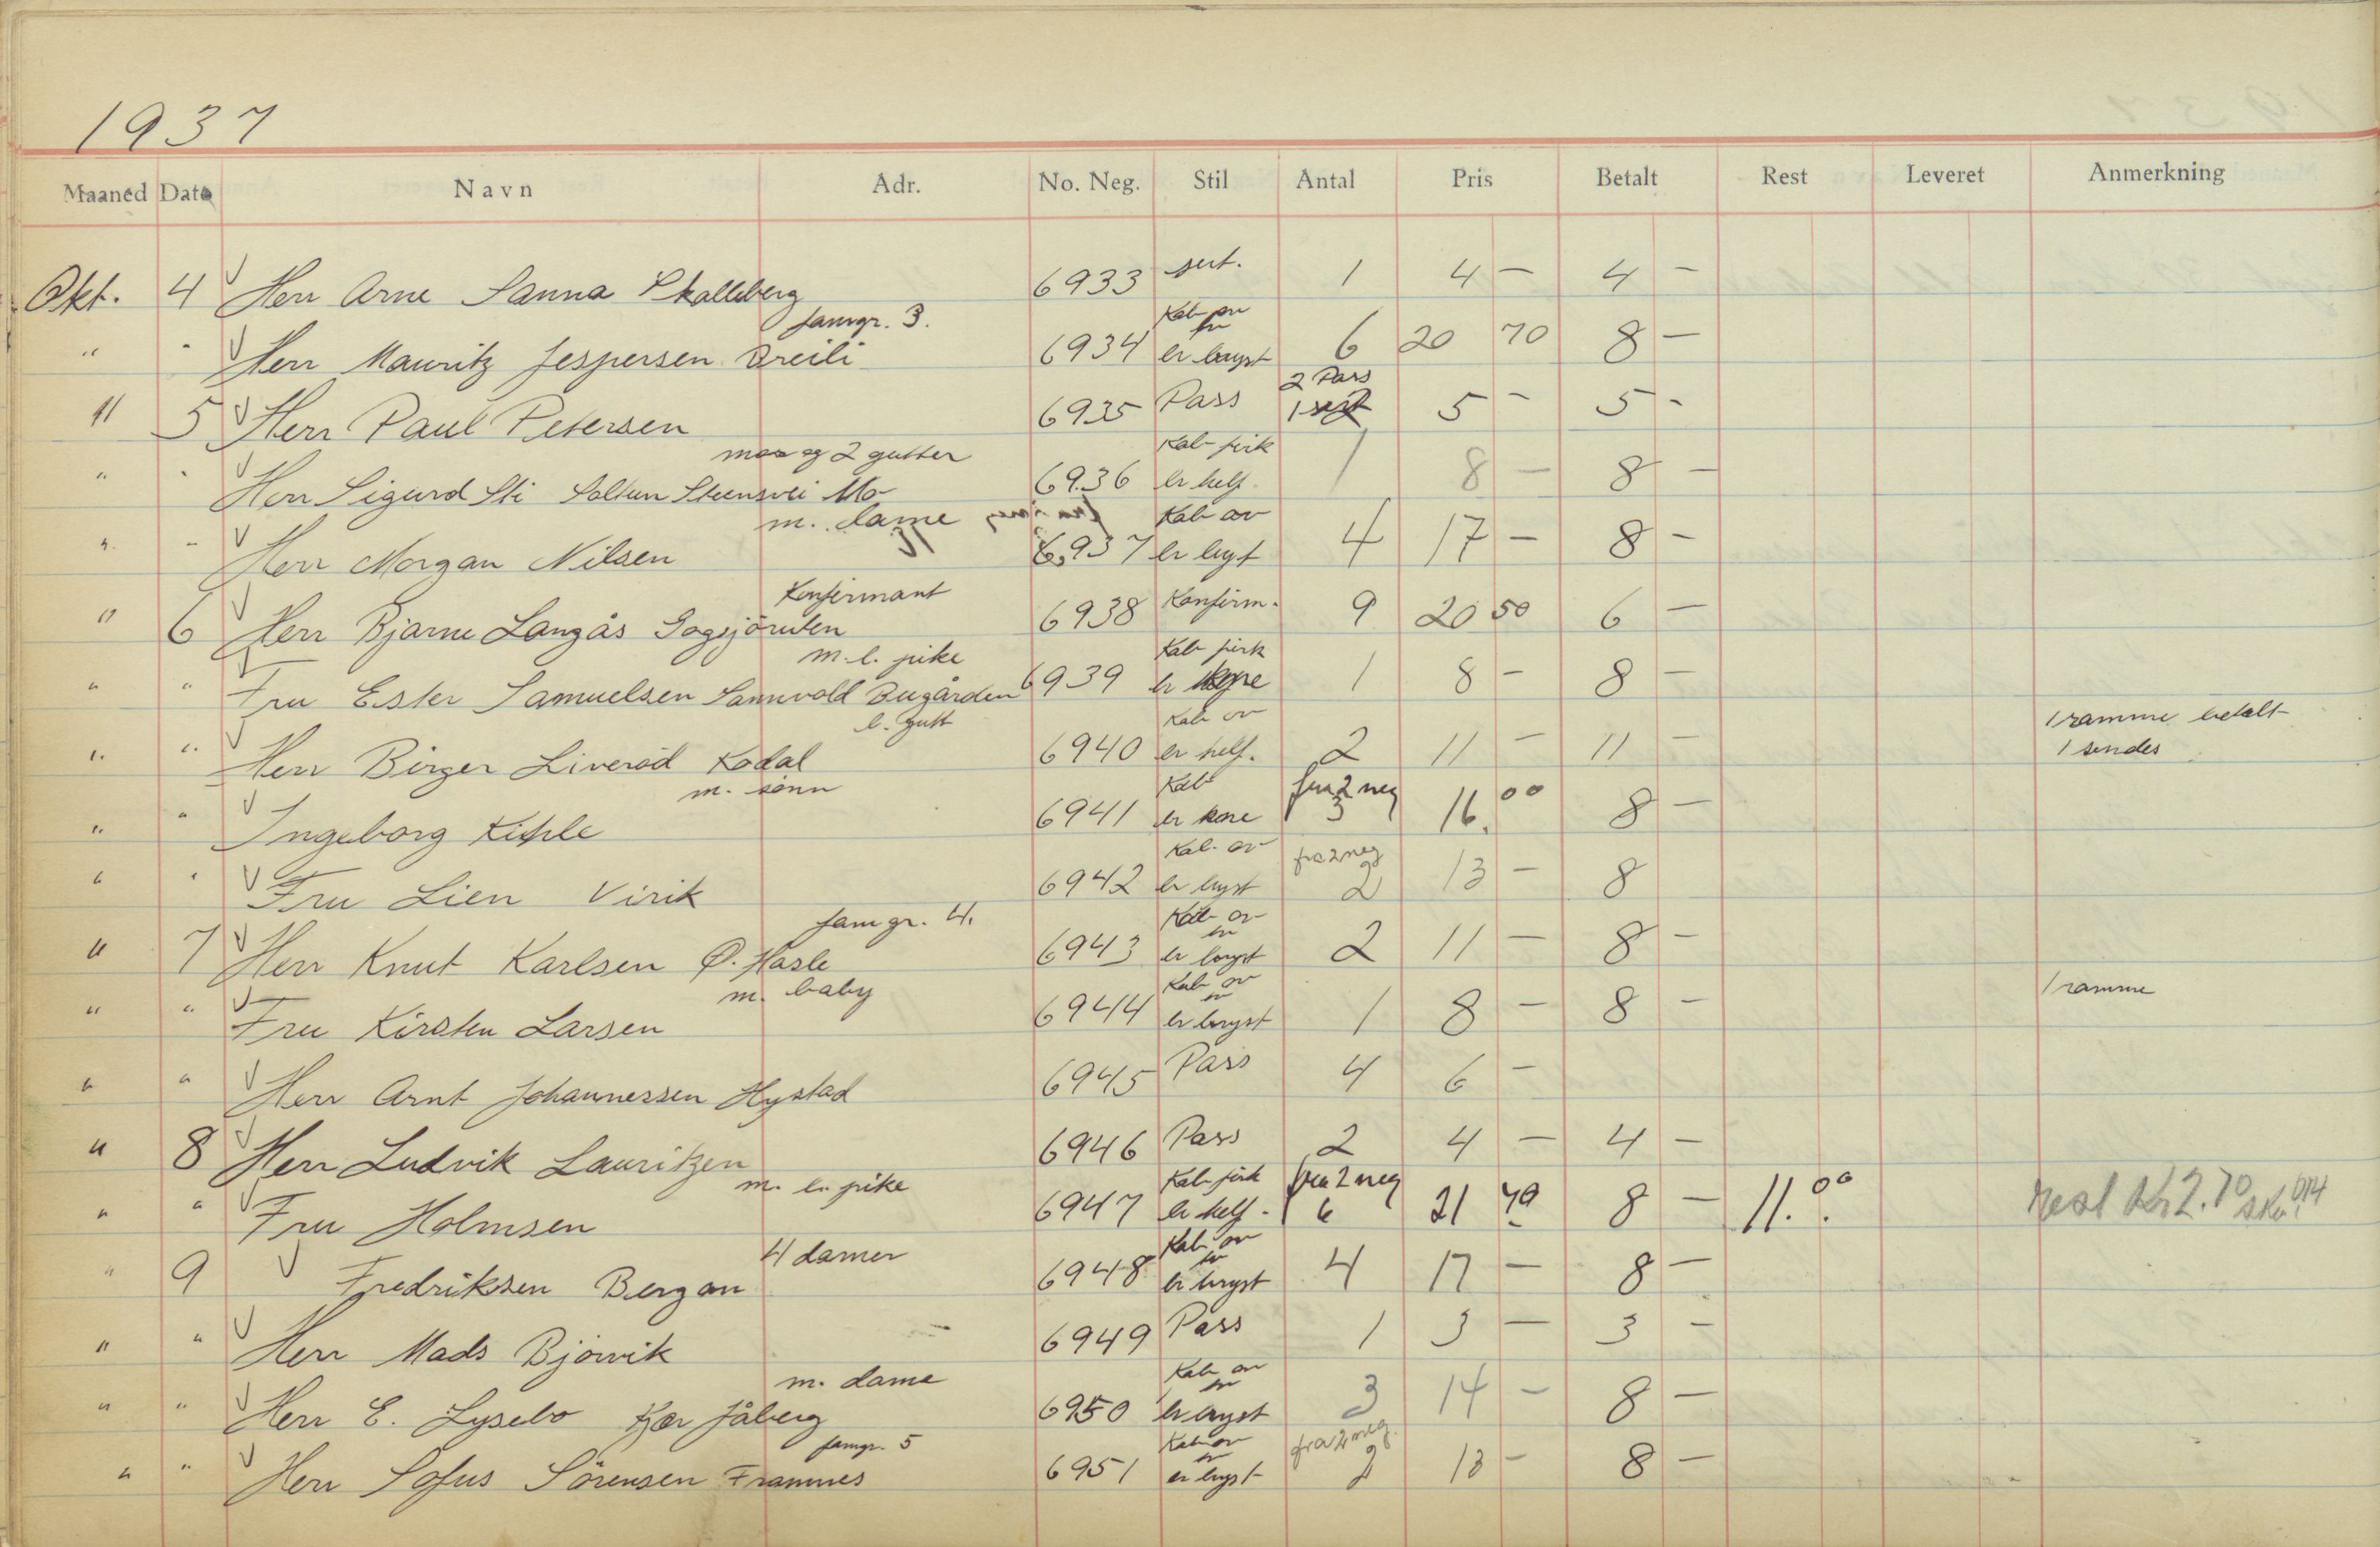 1937
Maaned Dato Navn Adr. No. Neg. Stil Antal Pris Betalt Rest Leveret Anmerkning
Okt. 4 Herr Arne Sanna Skalleberg 6933 1 4 – 4 –
famgr. 3. Kab
" " Herr Mauritz Jespersen Breili 6934 er bryst 6 20 70 8 –
2 Pass
" 5 Herr Paul Petersen 6935 Pass 1 5 – 5 –
og 2 gutter Kab
" " Herr Sigurd Sti 6936 er helf. 1 8 – 8 –
m. dame Kab ov
" " Herr Morgan Nilsen 6937 4 17 – 8 –
Konfirmant
" 6 Herr Bjarne Langås 6938 Konfirm. 9 20 50 6 –
m. l. pike Kab
" " Fru Ester Samuelsen Bugården 6939 er 1 8 – 8 –
l. gutt Kab ov 1 ramme betalt
" " Herr Birger Liverød Kodal 6940 er helf. 2 11 – 11 – 1 sendes
m. sønn Kab fra 2 neg
" " Ingeborg 6941 er kne 3 16.00 8 –
Kab. ov fra 2 neg
" " Fru Lien Virik 6942 er bryst 2 13 – 8
fam gr. 4. Kab ov
" 7 Herr Knut Karlsen Ø. Hasle 6943 er bryst 2 11 – 8 –
m. baby Kab ov 1 ramme
" " Fru Kirsten Larsen 6944 er bryst 1 8 – 8 –
" " Herr Arnt Johannessen Hystad 6945 Pass 4 6 –
" 8 Herr Ludvik Lauritzen 6946 Pass 2 4 – 4 –
m. l. pike Kab fra 2 neg
" " Fru Holmsen 6947 er helf. 6 21 70 8 – 11.00 rest Kr 2.70
4 damer Kab ov
" 9 Fredriksen Bergan 6948 er bryst 4 17 – 8 –
" " Herr Mads Bjørvik 6949 Pass 1 3 – 3 –
m. dame Kab ov
" " Herr E. Lysebo Kær Jåberg 6950 er bryst 3 14 – 8 –
famgr. 5 Kab ov fra 2 neg.
" " Herr Sofus Sörensen Framnes 6951 er bryst 2 13 – 8 –